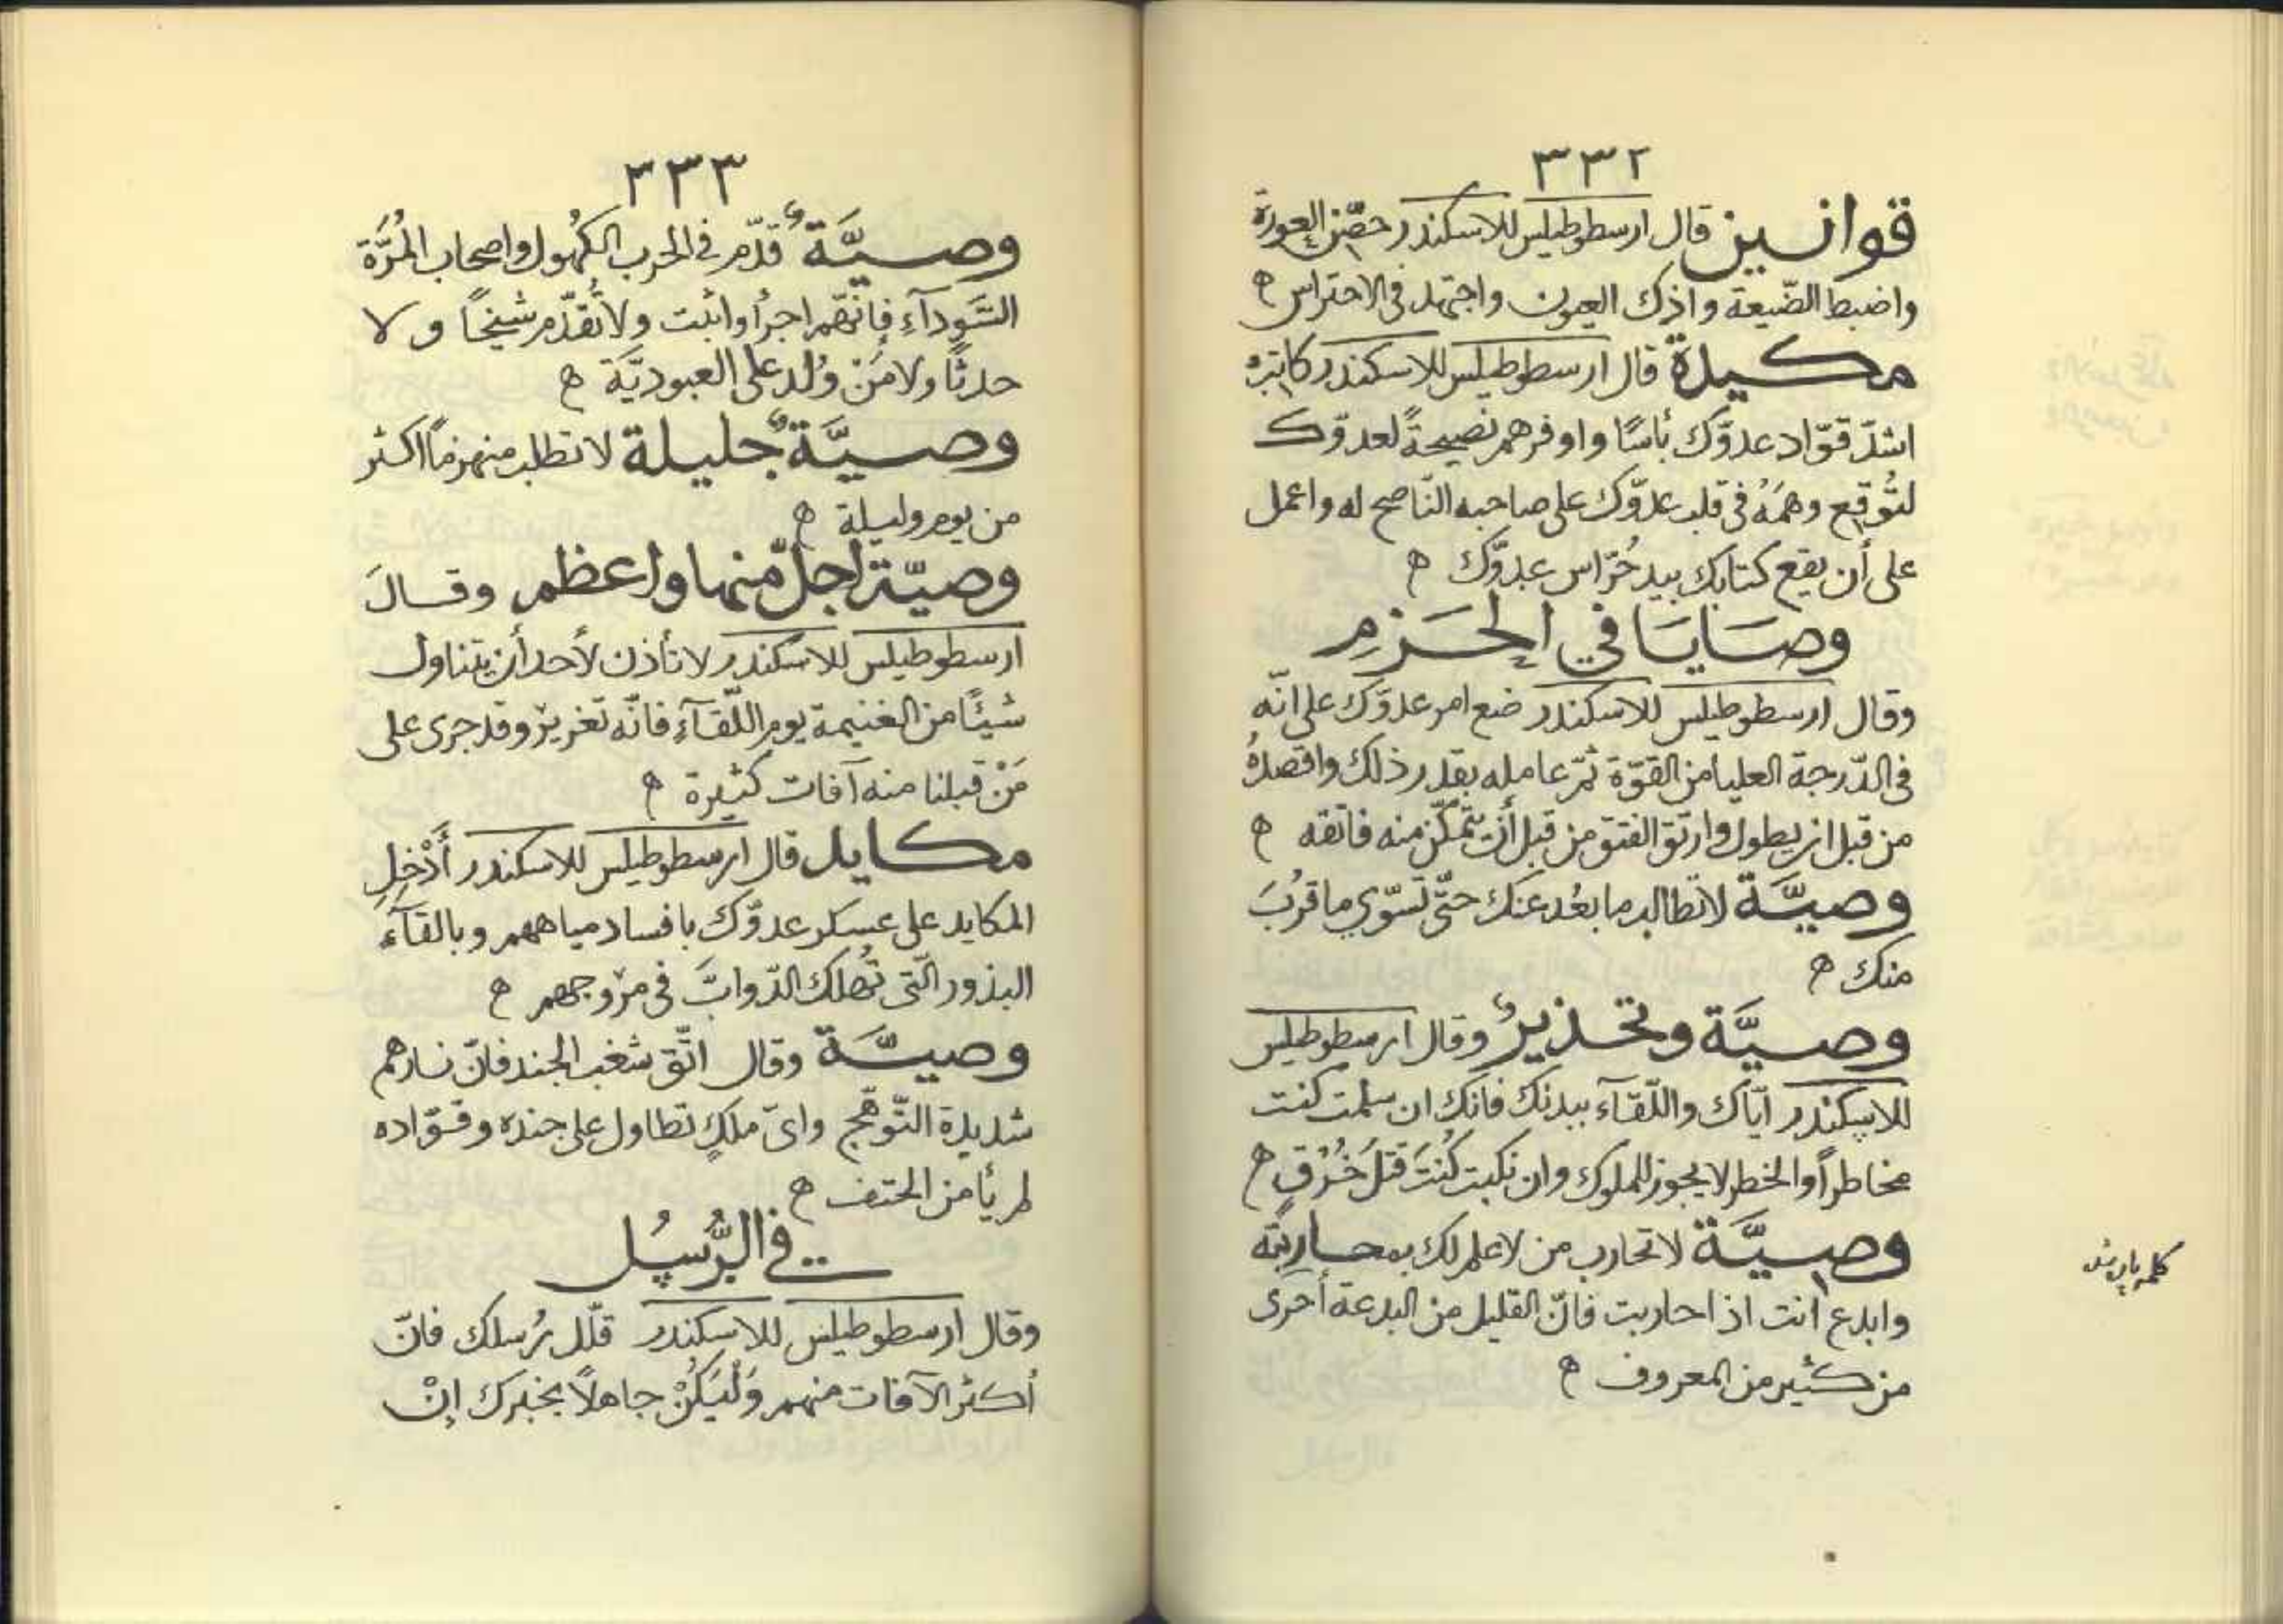 ٣٣٢
قوانين قال ارسطوطيلس للاسكندر حصّن العورة
واضبط الضّيعة واذك العيون واجتهد فى الاحتراس ه
مكيدة قال ارسطوطيلس للاسكندر كاتبْ
اشدّ قوّاد عدوّك بأسًا واوفرهم نصيحةً لعدوّك
لتُوقِع وهمَهُ فى قلب عدوّك على صاحبه النّاصح له واعمل
على أن يقع كتابك بيد حُرّاس عدوّك ه
وصَايَا في الحَزمِ
وقال ارسطوطيلس للاسكندر ضع امر عدوّك على انّه
فى الدّرجة العليا من القوّة ثمّ عامله بقدر ذلك واقصدهُ
من قبل ان يطول وارتق الفتق من قبل أن يتمكّن منه فاتقه ه
وصيَّة لا تطالب ما بعُد عنك حتّى تسوّي ما قرُبَ
منك ه
وصيَّة وتحذيرٌ وقال ارسطوطيلس
للاسكندر ايّاك واللّقآء ببدنك فانك ان سلمت كنت
مخاطراً والخطر لا يجوز للملوك وان نكبت كُنتَ قتلَ خُرْقٍ ه
وصيَّة لا تحارب من لا علم لك بمحاربته
وابدع انت اذا حاربت فانّ القليل من البدعة أحرى
من كثير من المعروف ه
٣٣٣
وصيَّةٌ قدّم فى الحرب الكهُول واصحاب المُرَّة
السَّودآءِ فإنّهم اجرأ وأثبت ولا تُقدّم شيخًا و لا
حدثًا ولا مَنْ وُلد على العبوديّة ه
وصيَّةٌ جليلة لا تطلب منهزماً اكثر
من يوم وليلة ه
وصيّة اجلّ منها واعظم وقالَ
ارسطوطيلس للاسكندر لا تأذن لأحد أن يتناول
شيئًا من الغنيمة يوم اللّقآءِ فانّه تغريرٌ وقد جرى على
مَنْ قبلنا منه آفات كثيرة ه
مكايد قال ارسطوطيلس للاسكندر أَدْخِلِ
المكايد على عسكر عدوّك بافساد مياههم وبالقآءِ
البذور الّتى تُهلك الدّوابَّ فى مروجهم ه
وصيَّة وقال اتّق شغب الجند فانّ نارهم
شديدة التّوهّج واىّ ملكٍ تطاول على جنده وقوّاده
لم يأمن الحتف ه
في الرُّسُل
وقال ارسطوطيلس للاسكندر قلّل رُسلك فانّ
أكثر الآفات منهم وَلْيَكُنْ جاهلاً بخبرك إنْ